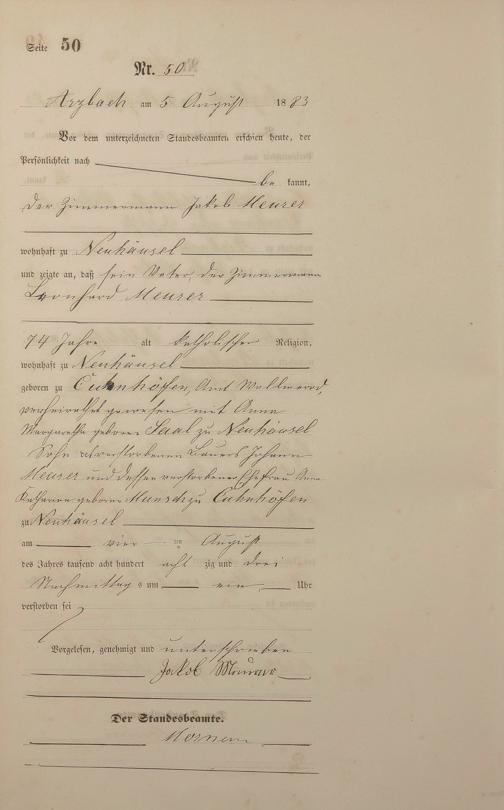 Seite 50
Nr. 50
Arzbach am 5 August 1883
Vor dem unterzeichneten Standesbeamten erschien heute, der
Persönlichkeit nach
be kannt,
der Zimmermann Jakob Meurer
wohnhaft zu Neuhäusel
und zeigte an, daß sein Vater, der Zimmermann
Leonhard Meurer
74 Jahre alt katholischer Religion,
wohnhaft zu Neuhäusel
geboren zu Eutenhöfen, Amt Wallmerod,
verheirathet gewesen mit Anna
Margaretha geborene Saal zu Neuhäusel
Sohn des verstorbenen Bauers Johann
Meurer und dessen verstorbener Ehefrau Anna
Katharina geborene zu
zu Neuhäusel
am vier ten August
des Jahres tausend acht hundert acht zig und drei
Nachmittags um ein Uhr
verstorben sei
Vorgelesen, genehmigt und unterschrieben
Jakob Meurer
Der Standesbeamte.